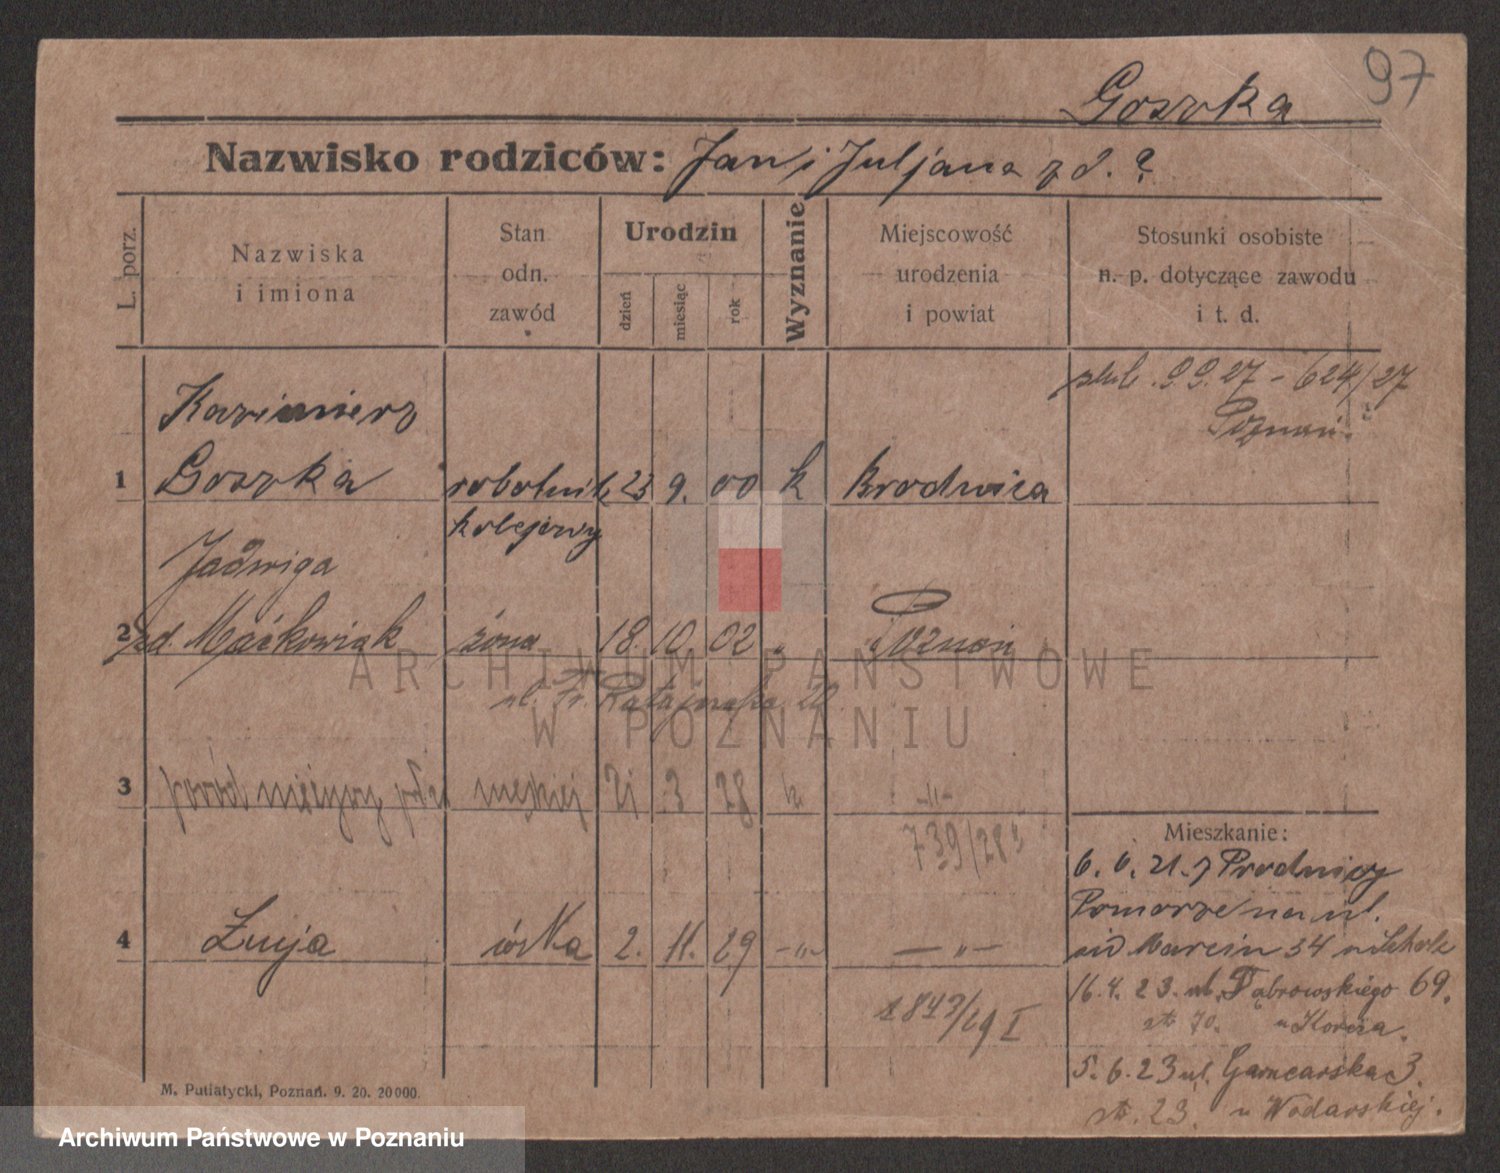 97
Goszka
Nazwisko rodziców: Jan i Juljana z d. ?
L. porz.
Nazwiska i imiona
Stan odn. zawód
Urodzin
dzień
miesiąc
rok
Wyznanie
Miejscowość urodzenia i powiat
Stosunki osobiste n. p. dotyczące zawodu i t. d.
ślub. 9.9.27 - 624/27
Poznań
Kazimierz
1 Goszka robotnik 23 9. 00 k Brodnica
kolejowy
Jadwiga
2 zd. Maćkowiak żona 18. 10. 02 " Poznań
ul. Fr. Ratajczaka 20
3 poród nieżywy płci męskiej 21 3 28 k -"-
739/28
Mieszkanie:
6. 6. 21. z Brodnicy
Pomorze na ul.
św Marcin 34 u
4 Łucja córka 2. 11. 29 -"- -"-
1843/29 I
16. 4. 23. ul. Dąbrowskiego 69.
str 70. u
5. 6. 23 ul. Garncarska 3.
str. 23. u Wodarskiej.
M. Putiatycki, Poznań. 9. 20. 20000.
ARCHIWUM PAŃSTWOWE
W POZNANIU
Archiwum Państwowe w Poznaniu